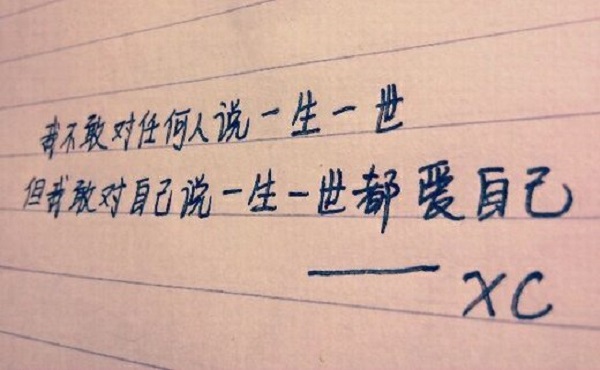 我不敢对任何人说一生一世
但我敢对自己说一生一世都爱自己
——XC